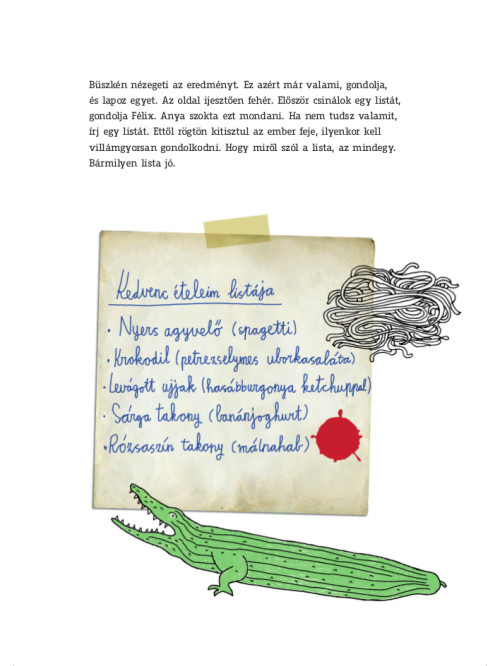 Büszkén nézegeti az eredményt. Ez azért már valami, gondolja,
és lapoz egyet. Az oldal ijesztően fehér. Először csinálok egy listát,
gondolja Félix. Anya szokta ezt mondani. Ha nem tudsz valamit,
írj egy listát. Ettől rögtön kitisztul az ember feje, ilyenkor kell
villámgyorsan gondolkodni. Hogy miről szól a lista, az mindegy.
Bármilyen lista jó.
Kedvenc ételeim listája
• Nyers agyvelő (spagetti)
• Krokodil (petrezselymes uborkasaláta)
• Levágott ujjak (hasábburgonya ketchuppal)
• Sárga takony (banánjoghurt)
• Rózsaszín takony (málnahab)